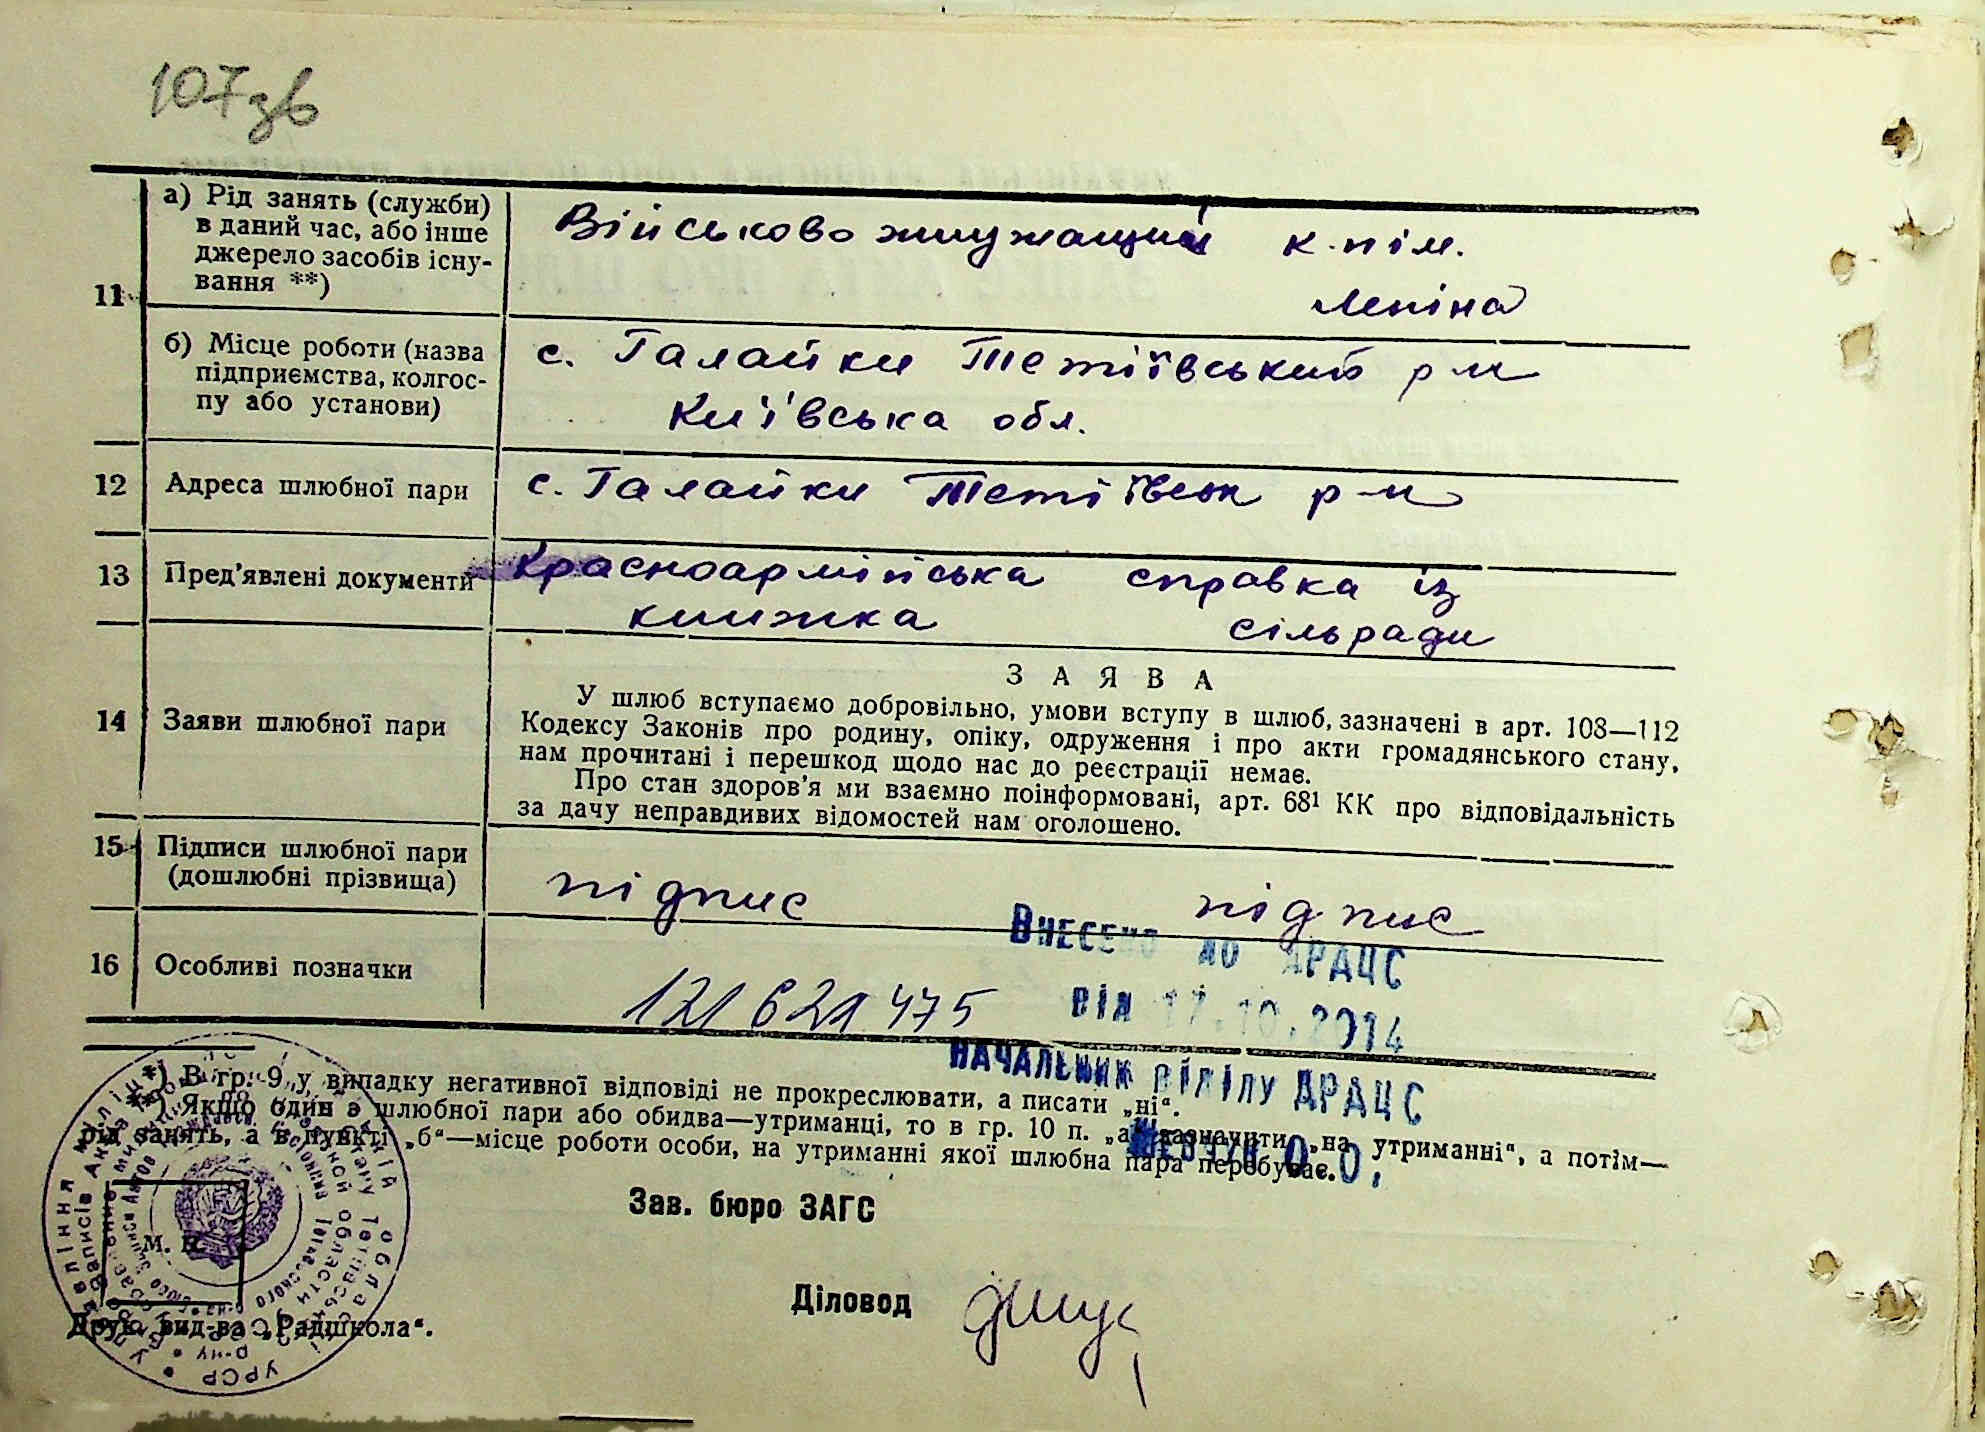 107 зв
а) Рід занять (служби)
в даний час, або інше
джерело засобів існу-
вання **)
11
Військовожшужащий к-п ім.
Леніна
б) Місце роботи (назва
підприємства, колгос-
пу або установи)
с. Галайки Тетіївський р-н
Київська обл.
12 Адреса шлюбної пари с. Галайки Тетіївськ р-н
13 Пред'явлені документи Красноармійська справка із
книжка сільради
14 Заяви шлюбної пари
ЗАЯВА
У шлюб вступаємо добровільно, умови вступу в шлюб, зазначені в арт. 108—112
Кодексу Законів про родину, опіку, одруження і про акти громадянського стану,
нам прочитані і перешкод щодо нас до реєстрації немає.
Про стан здоров'я ми взаємно поінформовані, арт. 68¹ КК про відповідальність
за дачу неправдивих відомостей нам оголошено.
15 Підписи шлюбної пари
(дошлюбні прізвища)
підпис підпис
16 Особливі позначки
121 621 475
Внесено до ДРАЦС
від 17.10.2014
Начальник відділу ДРАЦС
О.О.
*) В гр. 9 у випадку негативної відповіді не прокреслювати, а писати „ні“.
**) Якщо один з шлюбної пари або обидва—утриманці, то в гр. 10 п. „а“ зазначити „на утриманні“, а потім—
рід занять, а в пункті „б“—місце роботи особи, на утриманні якої шлюбна пара перебуває.
Зав. бюро ЗАГС
М.
Діловод
Друк. вид-ва „Радшкола“.
УРСР